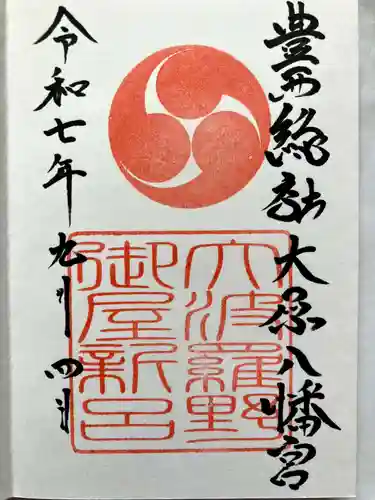 豊西総社大原八幡宮
大波羅野
御屋新
令和七年九月四日